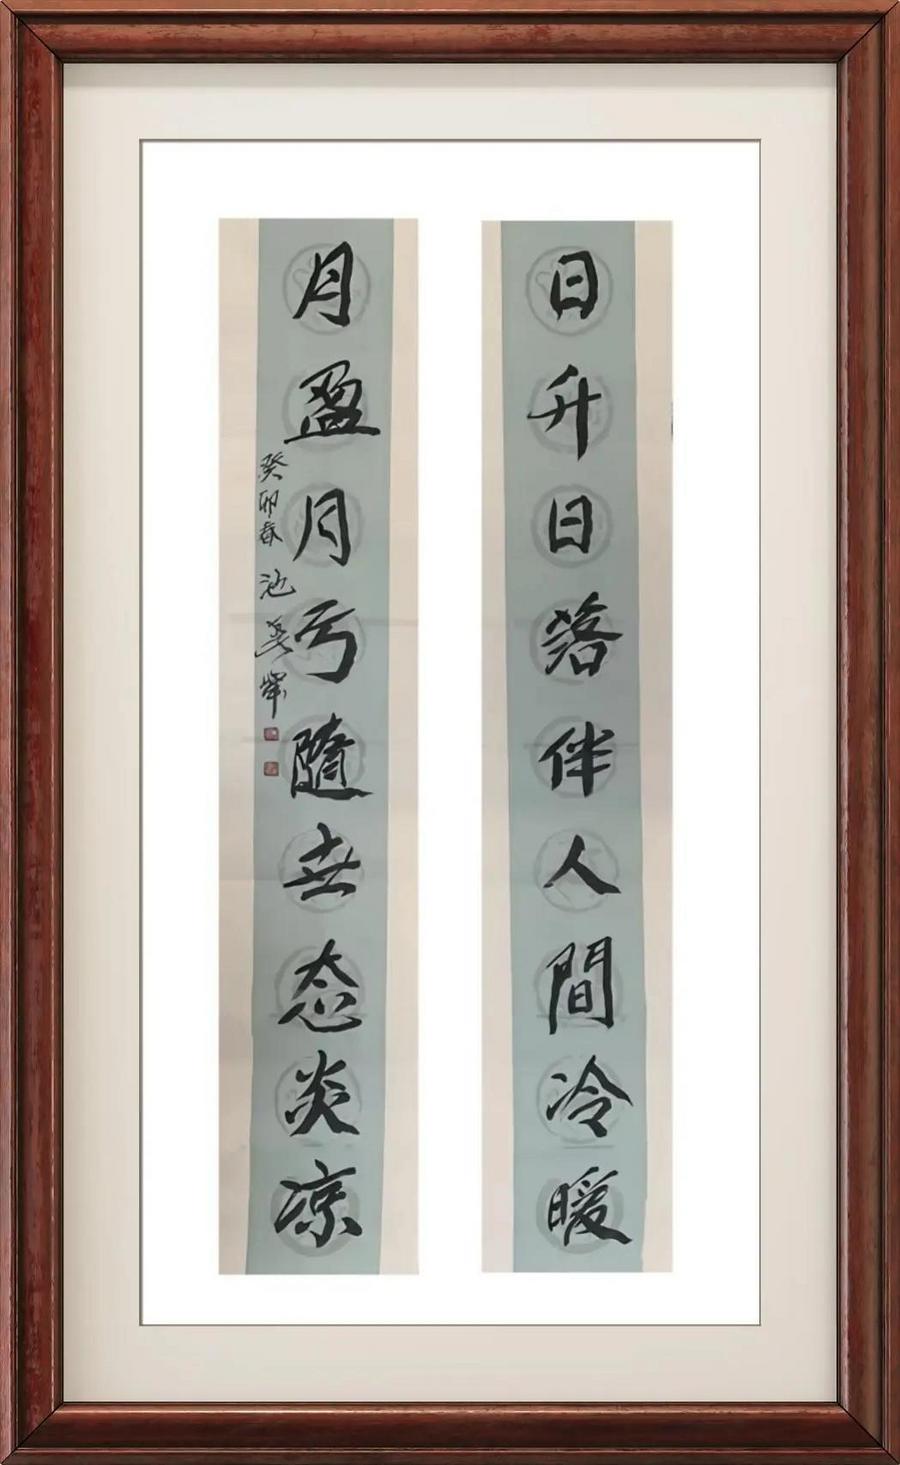 日升日落伴人間冷暖
月盈月亏隨世态炎凉
癸卯春 池